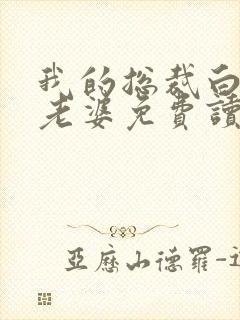 我的总裁白
老婆免費讀
亞歷山德羅-